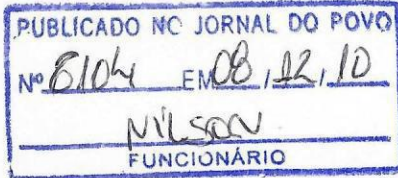 PUBLICADO NO JORNAL DO POVO
Nº 6104 EM 08, 12, 10
NILSON
FUNCIONÁRIO